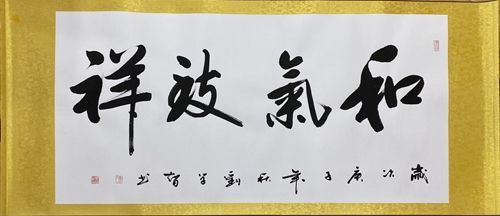 和氣致祥
歲次庚子年秋劉學智书